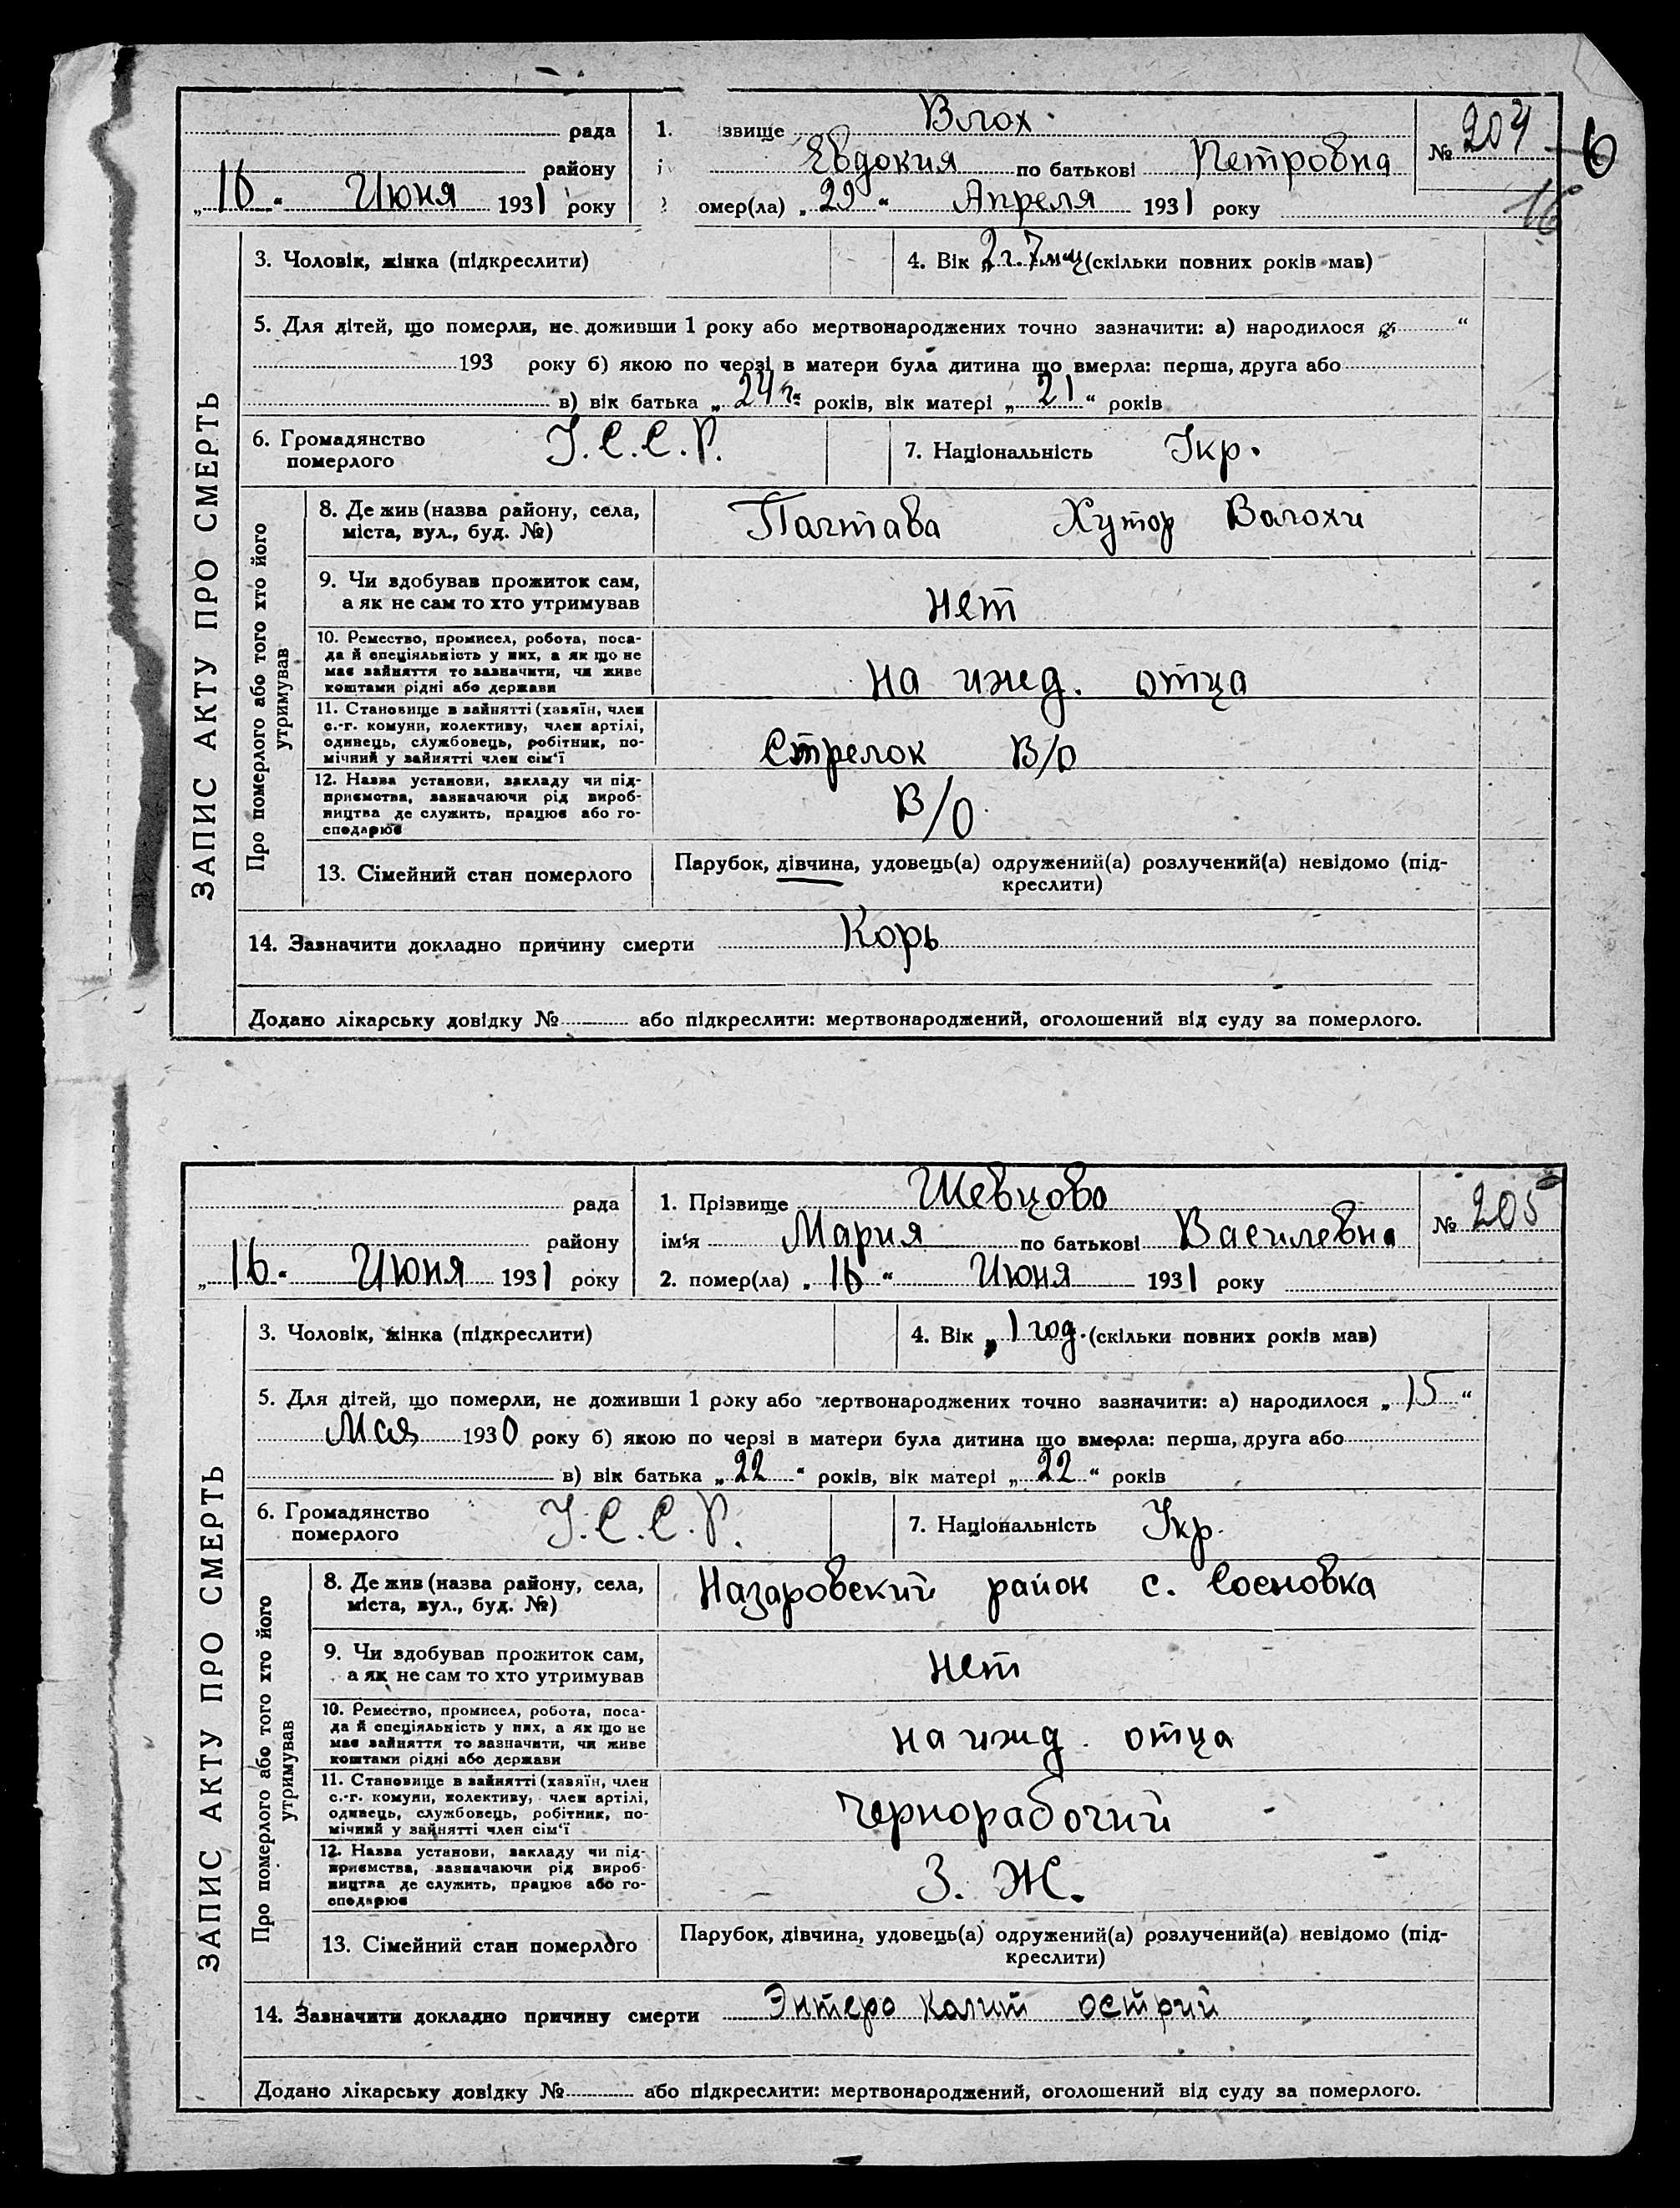 рада
району
„16“ Июня 1931 року
1. звище Влох.
Евдокия по батькові Петровна
омер(ла) „29“ Апреля 1931 року
№ 204
6
16
3. Чоловік, жінка (підкреслити)
4. Вік „2 г. 7 мц (скільки повних років мав)
5. Для дітей, що померли, не доживши 1 року або мертвонароджених точно зазначити: а) народилося “
193 року б) якою по черзі в матери була дитина що вмерла: перша, друга або
в) вік батька „24 г.“ років, вік матері „21“ років
6. Громадянство
померлого
У.С.С.Р.
7. Національність Укр.
ЗАПИС АКТУ ПРО СМЕРТЬ
Про померлого або того хто його
утримував
8. Де жив (назва району, села,
міста, вул., буд. №)
Полтава Хутор Волохи
9. Чи здобував прожиток сам,
а як не сам то хто утримував
нет
10. Ремество, промисел, робота, поса-
да й спеціяльність у них, а як що не
має зайняття то зазначити, чи живе
коштами рідні або держави
на ижд. отца
11. Становище в зайнятті (хазяїн, член
с.-г. комуни, колективу, член артілі,
одинець, службовець, робітник, по-
мічний у зайнятті член сім'ї
Стрелок В/О
12. Назва установи, закладу чи під-
приємства, зазначаючи рід вироб-
ництва де служить, працює або го-
сподарює
В/О
13. Сімейний стан померлого
Парубок, дівчина, удовець(а) одружений(а) розлучений(а) невідомо (під-
креслити)
14. Зазначити докладно причину смерти Корь
Додано лікарську довідку № або підкреслити: мертвонароджений, оголошений від суду за померлого.
рада
району
„16“ Июня 1931 року
1. Прізвище Шевцова
ім'я Мария по батькові Василевна
2. помер(ла) „16“ Июня 1931 року
№ 205
3. Чоловік, жінка (підкреслити)
4. Вік „1 год. (скільки повних років мав)
5. Для дітей, що померли, не доживши 1 року або мертвонароджених точно зазначити: а) народилося „15“
Мая 1930 року б) якою по черзі в матери була дитина що вмерла: перша, друга або
в) вік батька „22“ років, вік матері „22“ років
6. Громадянство
померлого
У.С.С.Р.
7. Національність Укр.
ЗАПИС АКТУ ПРО СМЕРТЬ
Про померлого або того хто його
утримував
8. Де жив (назва району, села,
міста, вул., буд. №)
Назаровский район с. Сосновка
9. Чи здобував прожиток сам,
а як не сам то хто утримував
нет
10. Ремество, промисел, робота, поса-
да й спеціяльність у них, а як що не
має зайняття то зазначити, чи живе
коштами рідні або держави
на ижд. отца
11. Становище в зайнятті (хазяїн, член
с.-г. комуни, колективу, член артілі,
одинець, службовець, робітник, по-
мічний у зайнятті член сім'ї
Чернорабочий
12. Назва установи, закладу чи під-
приємства, зазначаючи рід вироб-
ництва де служить, працює або го-
сподарює
З. Ж.
13. Сімейний стан померлого
Парубок, дівчина, удовець(а) одружений(а) розлучений(а) невідомо (під-
креслити)
14. Зазначити докладно причину смерти Энтеро колит острий
Додано лікарську довідку № або підкреслити: мертвонароджений, оголошений від суду за померлого.